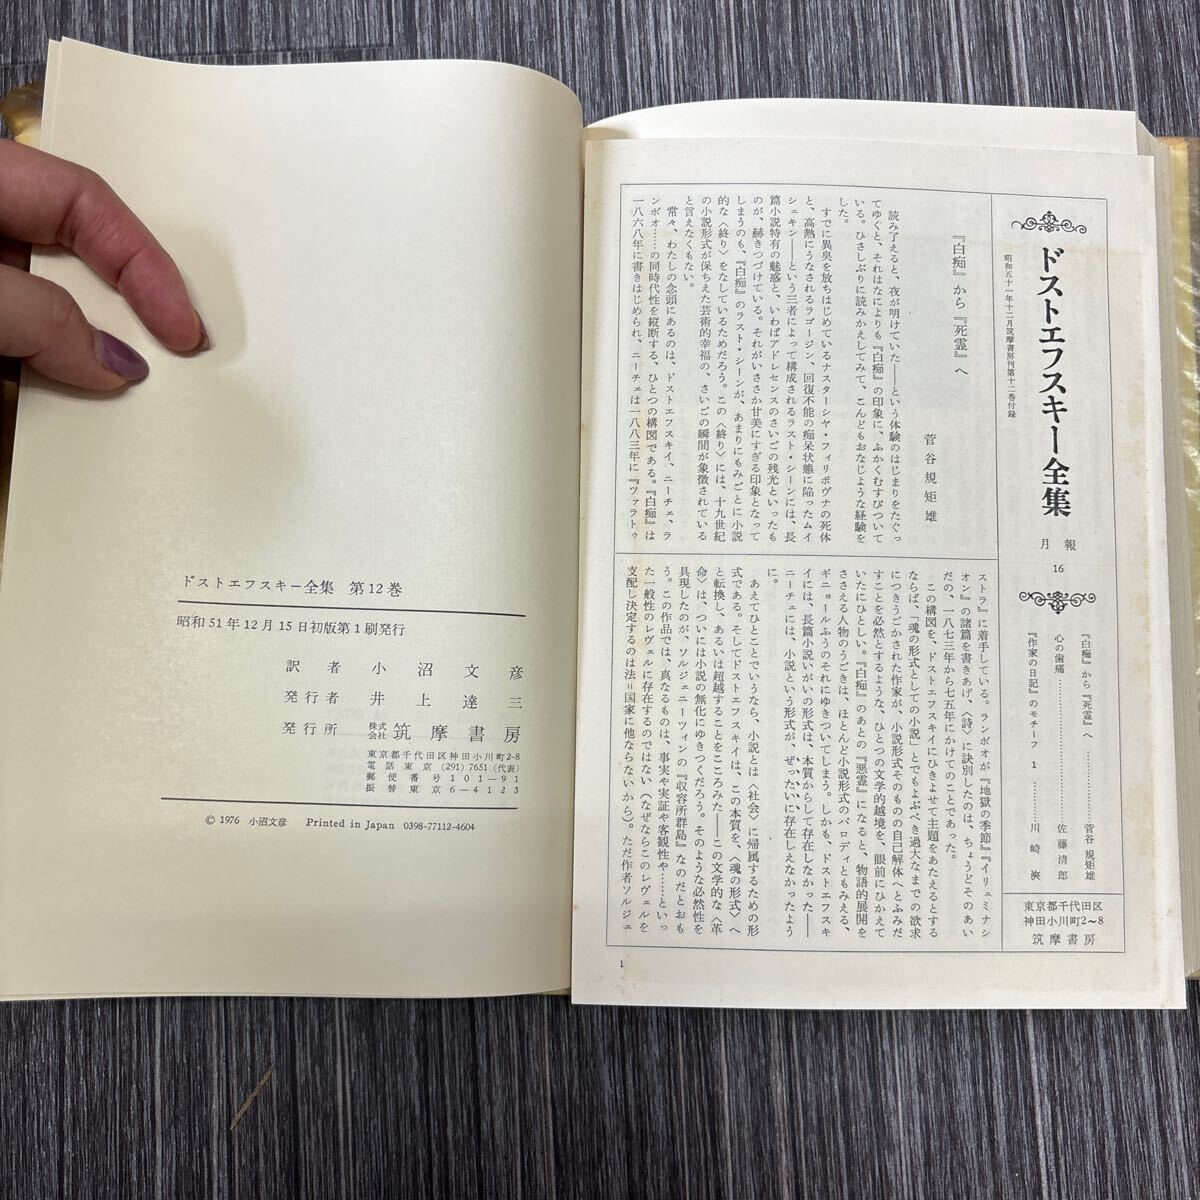 ドストエフスキー全集 第12巻
昭和51年12月15日初版第1刷発行
訳者 小沼文彦
発行者 井上達三
発行所 株式会社 筑摩書房
東京都千代田区神田小川町2-8
電話 東京 (291) 7651 (代表)
郵便番号 101-91
振替 東京 6-4123
© 1976 小沼文彦 Printed in Japan 0398-77112-4604
ドストエフスキー全集
昭和五十一年十二月筑摩書房刊第十二巻付録
月報
16
『白痴』から『死霊』へ…………菅谷規矩雄
心の歯痛…………佐藤清郎
『作家の日記』のモチーフ 1…………川崎浹
東京都千代田区
神田小川町2〜8
筑摩書房
『白痴』から『死霊』へ
菅谷規矩雄
読み了えると、夜が明けていた――という体験のはじまりをたぐっ
てゆくと、それはなによりも『白痴』の印象に、ふかくむすびついて
いる。ひさしぶりに読みかえしてみて、こんどもおなじような経験を
した。
すでに異臭を放ちはじめているナスターシヤ・フィリポヴナの死体
と、高熱にうなされるラゴージン、回復不能の痴呆状態に陥ったムイ
シュキン――という三者によって構成されるラスト・シーンには、長
篇小説特有の魅惑と、いわばアドレセンスのさいごの残光といったも
のが、赫きつづけている。それがいささか甘美にすぎる印象となって
しまうのも、『白痴』のラスト・シーンが、あまりにもみごとに小説
的な〈終り〉をなしているためだろう。この〈終り〉には、十九世紀
の小説形式が保ちえた芸術的幸福の、さいごの瞬間が象徴されている
と言えなくもない。
常々、わたしの念頭にあるのは、ドストエフスキイ、ニーチェ、ラ
ンボオ……の同時代性を縦断する、ひとつの構図である。『白痴』は
一八六八年に書きはじめられ、ニーチェは一八八三年に『ツァラトゥ
ストラ』に着手している。ランボオが『地獄の季節』『イリュミナシ
オン』の諸篇を書きあげ、〈詩〉に訣別したのは、ちょうどそのあい
だの、一八七三年から七五年にかけてのことであった。
この構図を、ドストエフスキイにひきよせて主題をあたえるとする
ならば、「魂の形式としての小説」とでもよぶべき過大なまでの欲求
につきうごかされた作家が、小説形式そのものの自己解体へとふみだ
すことを必然とするような、ひとつの文学的越境を、眼前にひかえて
いたにひとしい。『白痴』のあとの『悪霊』になると、物語的展開を
ささえる人物のうごきは、ほとんど小説形式のパロディともみえる、
ギニョールふうのそれにゆきついてしまう。しかも、ドストエフスキ
イには、長篇小説いがいの形式は、本質からして存在しなかった――
ニーチェには、小説という形式が、ぜったいに存在しえなかったよう
に。
あえてひとことでいうなら、小説とは〈社会〉に帰属するための形
式である。そしてドストエフスキイは、この本質を、〈魂の形式〉へ
と転換し、あるいは超越することをこころみた――この文学的な〈革
命〉は、ついには小説の無化にゆきつくだろう。そのような必然性を
具現したのが、ソルジェニーツィンの『収容所群島』なのだとおも
う。この作品では、真なるものは、事実や実証や客観性や……といっ
た一般性のレヴェルに存在するのではない（なぜならこのレヴェルを
支配し決定するのは法＝国家に他ならないから）。ただ作者ソルジェ
1